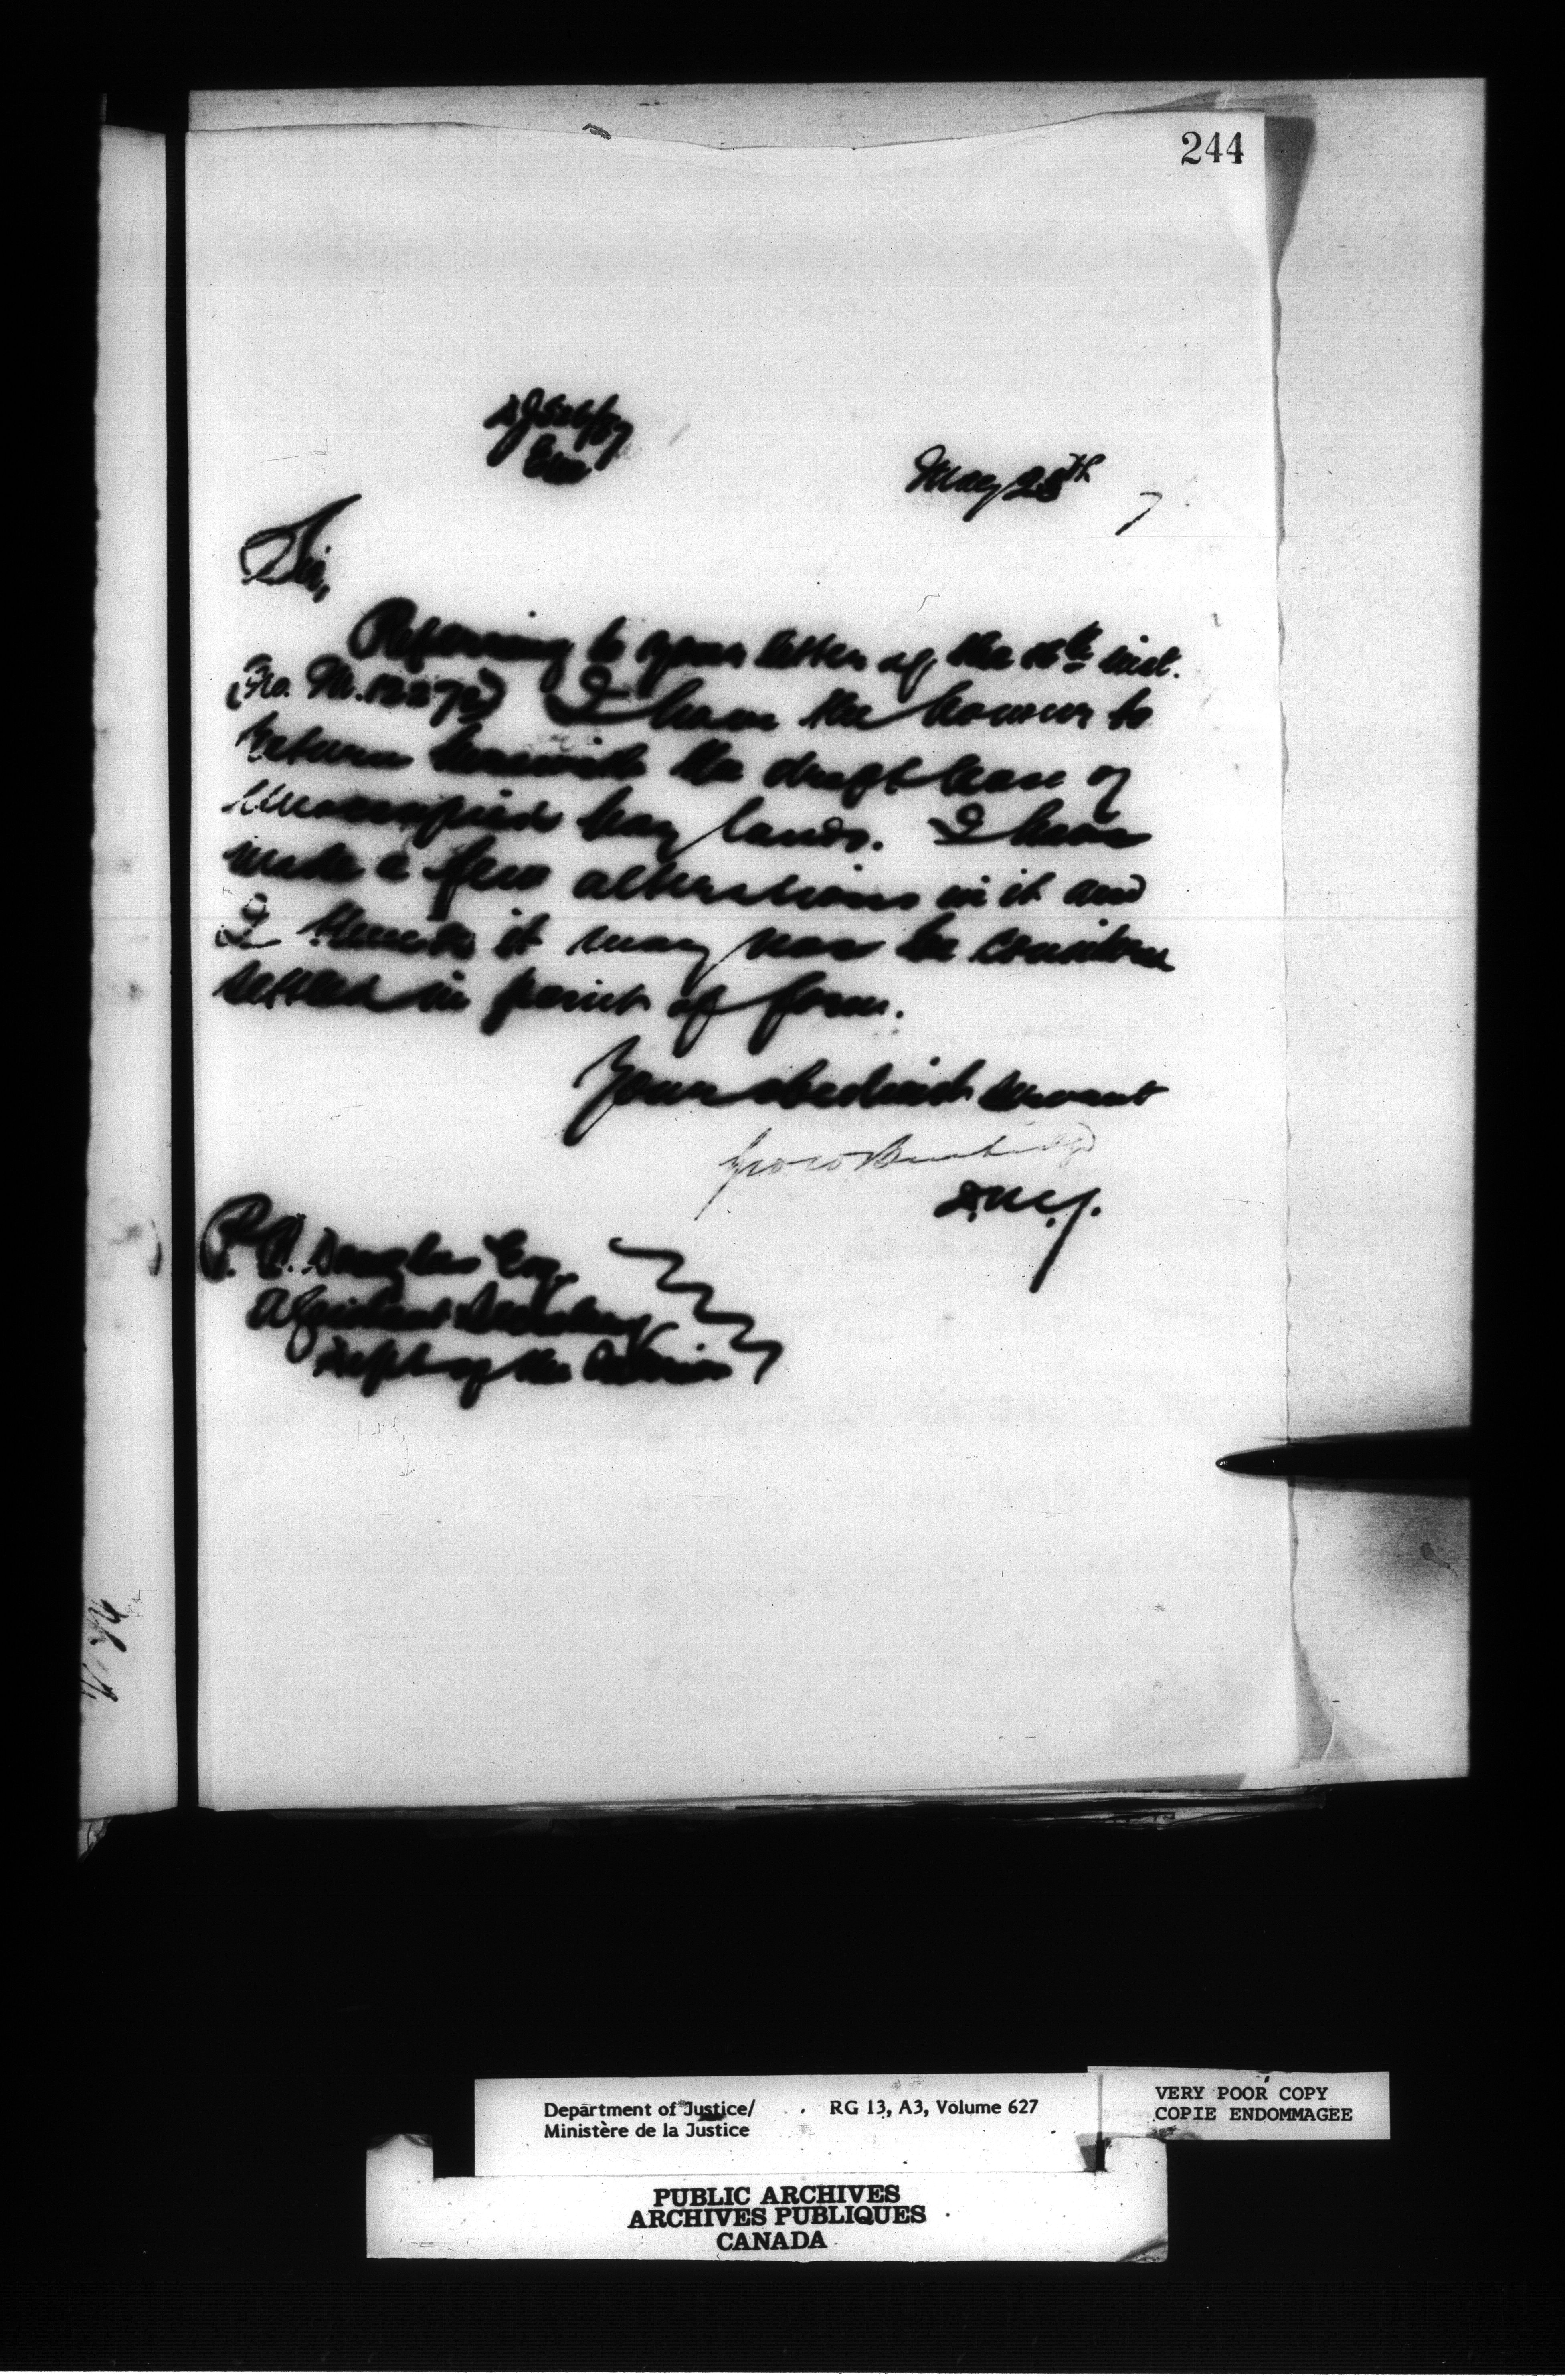 244
May 25th 7
Sir,
Referring to your letter of the 16th inst.
(No. M. I have the honour to
return herewith the draft lease of
unoccupied hay lands. I have
made a few alterations in it and
I think it may now be considered
settled in point of form.
Your obedient servant
Geo W Burbidge
D.M.J.
P. B. Douglas Esq.
Assistant Secretary
Dept of the Interior
Department of Justice/ RG 13, A3, Volume 627
Ministère de la Justice
VERY POOR COPY
COPIE ENDOMMAGEE
PUBLIC ARCHIVES
ARCHIVES PUBLIQUES
CANADA